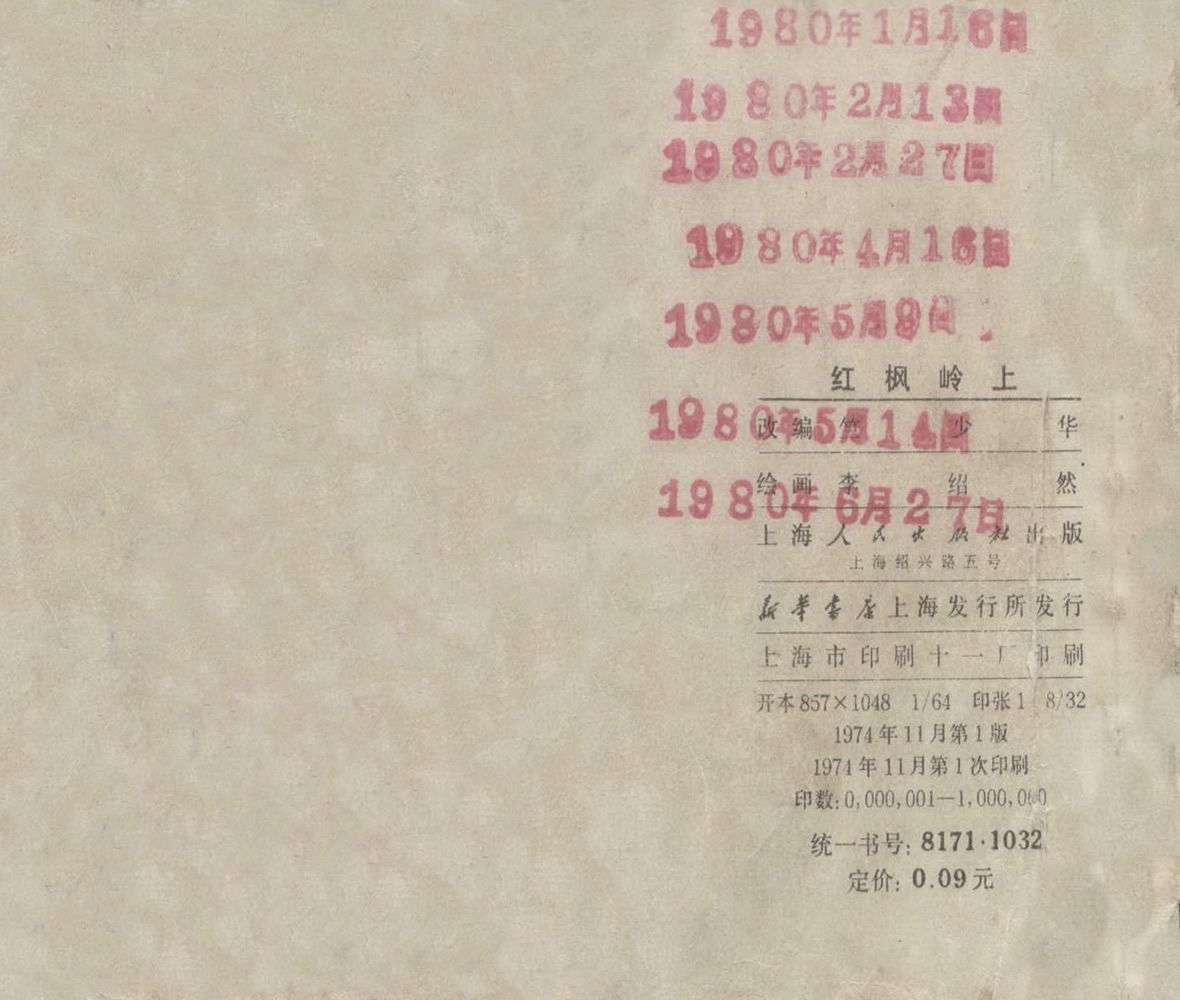 1980年1月16日
1980年2月13日
1980年2月27日
1980年4月16日
1980年5月9日
红枫岭上
1980年5月14日
改编 少华
绘画 李绍然
1980年6月27日
上海人民出版社出版
上海绍兴路五号
新华书店上海发行所发行
上海市印刷十一厂印刷
开本857×1048 1/64 印张1 8/32
1974年11月第1版
1974年11月第1次印刷
印数:0,000,001—1,000,000
统一书号:8171·1032
定价:0.09元